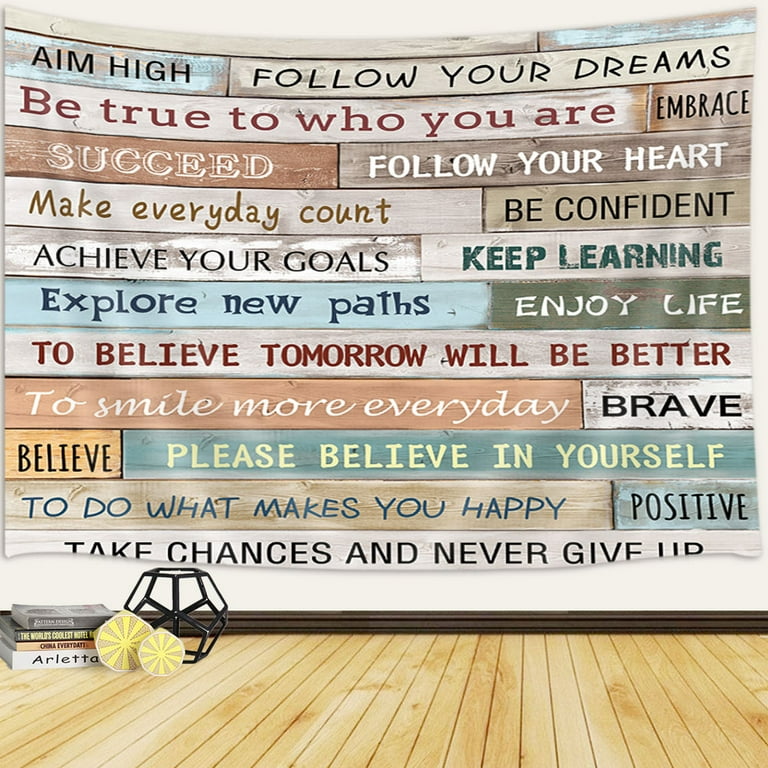 AIM HIGH FOLLOW YOUR DREAMS
Be true to who you are EMBRACE
SUCCEED FOLLOW YOUR HEART
Make everyday count BE CONFIDENT
ACHIEVE YOUR GOALS KEEP LEARNING
Explore new paths ENJOY LIFE
TO BELIEVE TOMORROW WILL BE BETTER
To smile more everyday BRAVE
BELIEVE PLEASE BELIEVE IN YOURSELF
TO DO WHAT MAKES YOU HAPPY POSITIVE
TAKE CHANCES AND NEVER GIVE UP
PATTERN DESIGN
THE WORLD'S COOLEST HOTEL
CHINA EVERYDAY!
Arletta